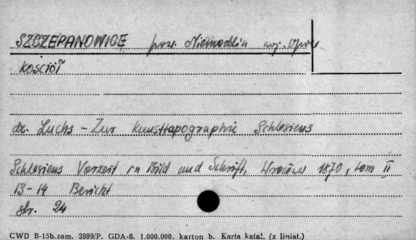 SZCZEPANOWICE pow. Niemodlin woj. Opole
KOŚCIÓŁ
dr. Luchs - Zur Kunsttopographie Schlesiens
Schlesiens Vorzeit in Bild und Schrift, Wrocław 1870, tom II
13-14 Bericht
str. 24
CWD B-15b.zam. 2889/P. GDA-8. 1.000.000. karton b. Karta katal. (z liniat.)